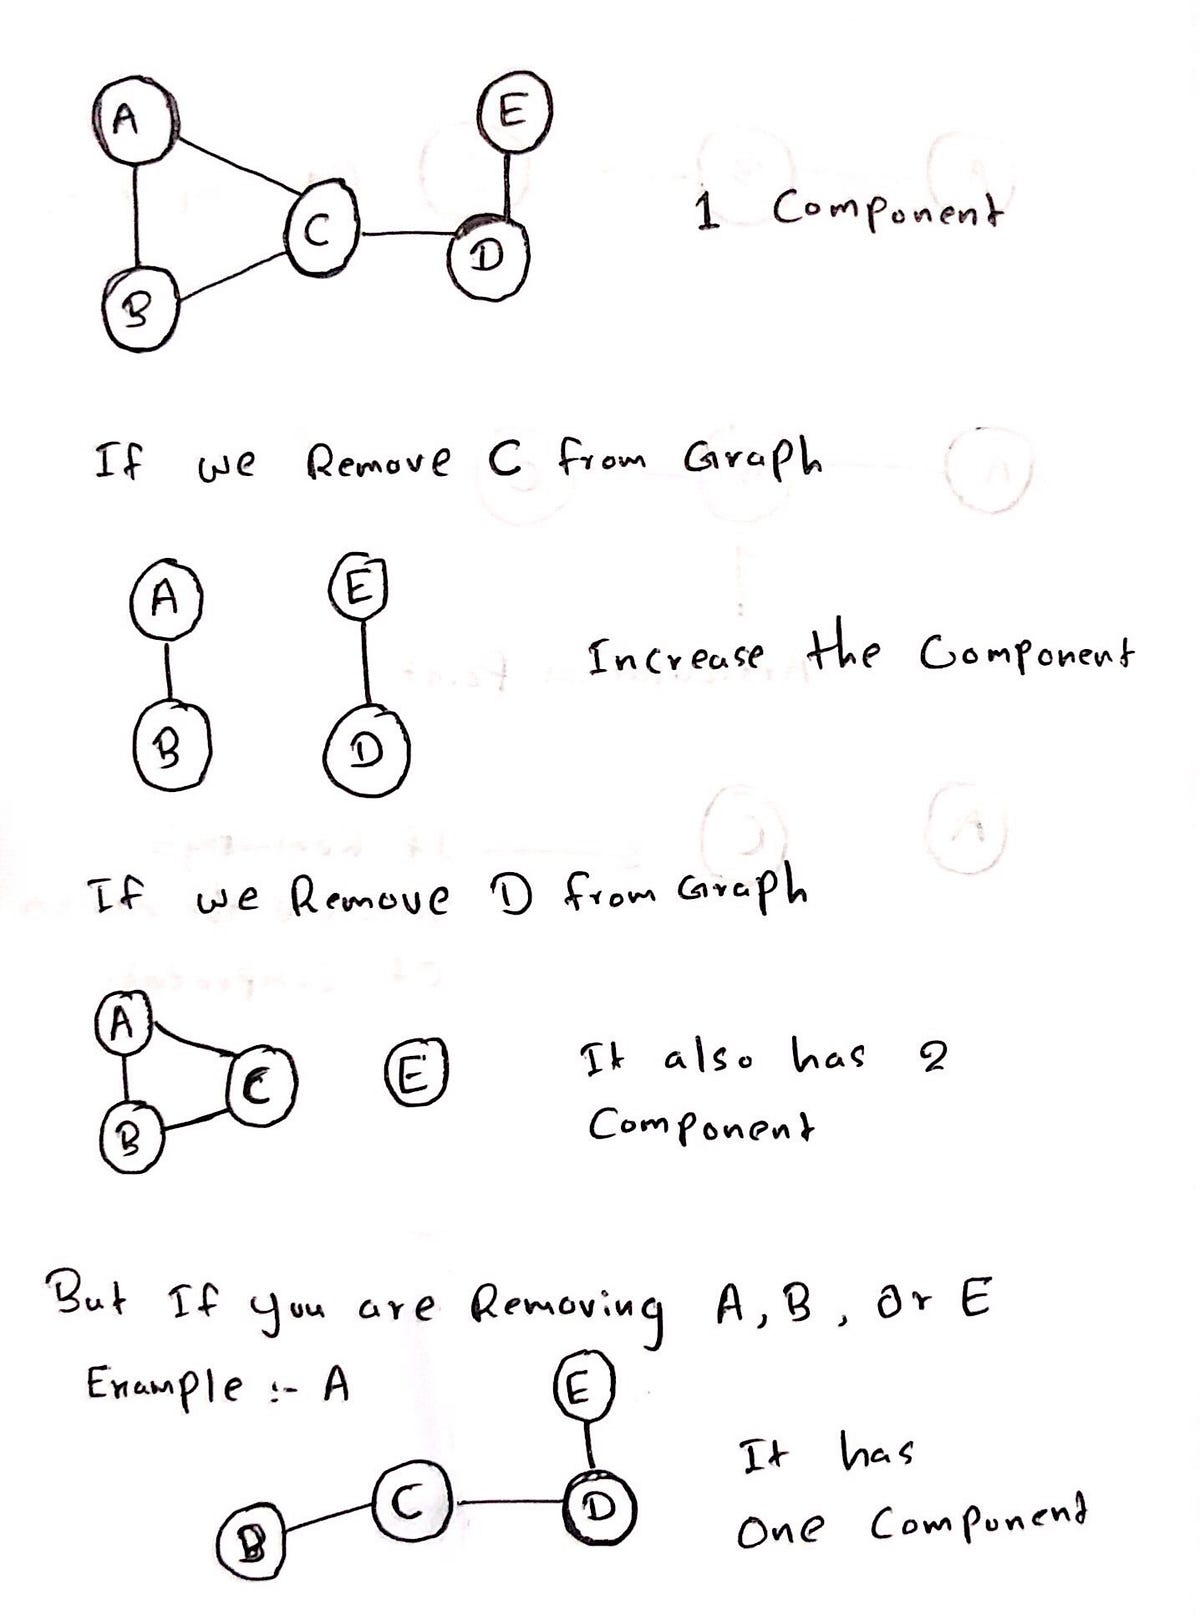 A
E
C
D
B
1 Component
If we Remove C from Graph
A
E
B
D
Increase the Component
If we Remove D from Graph
A
C
E
B
It also has 2
Component
But If you are Removing A, B, Or E
Example :- A
E
C
D
B
It has
One Component